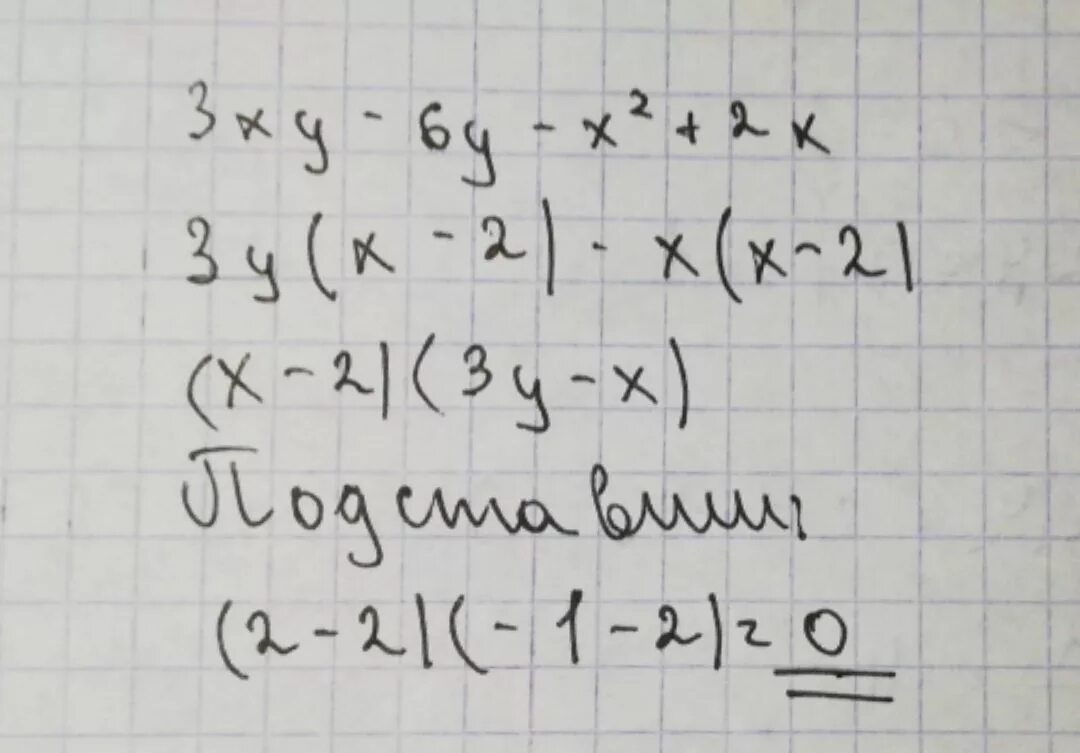 3xy - 6y - x² + 2x
3y(x - 2) - x(x - 2)
(x - 2)(3y - x)
Подставим:
(2 - 2)(-1 - 2) = 0